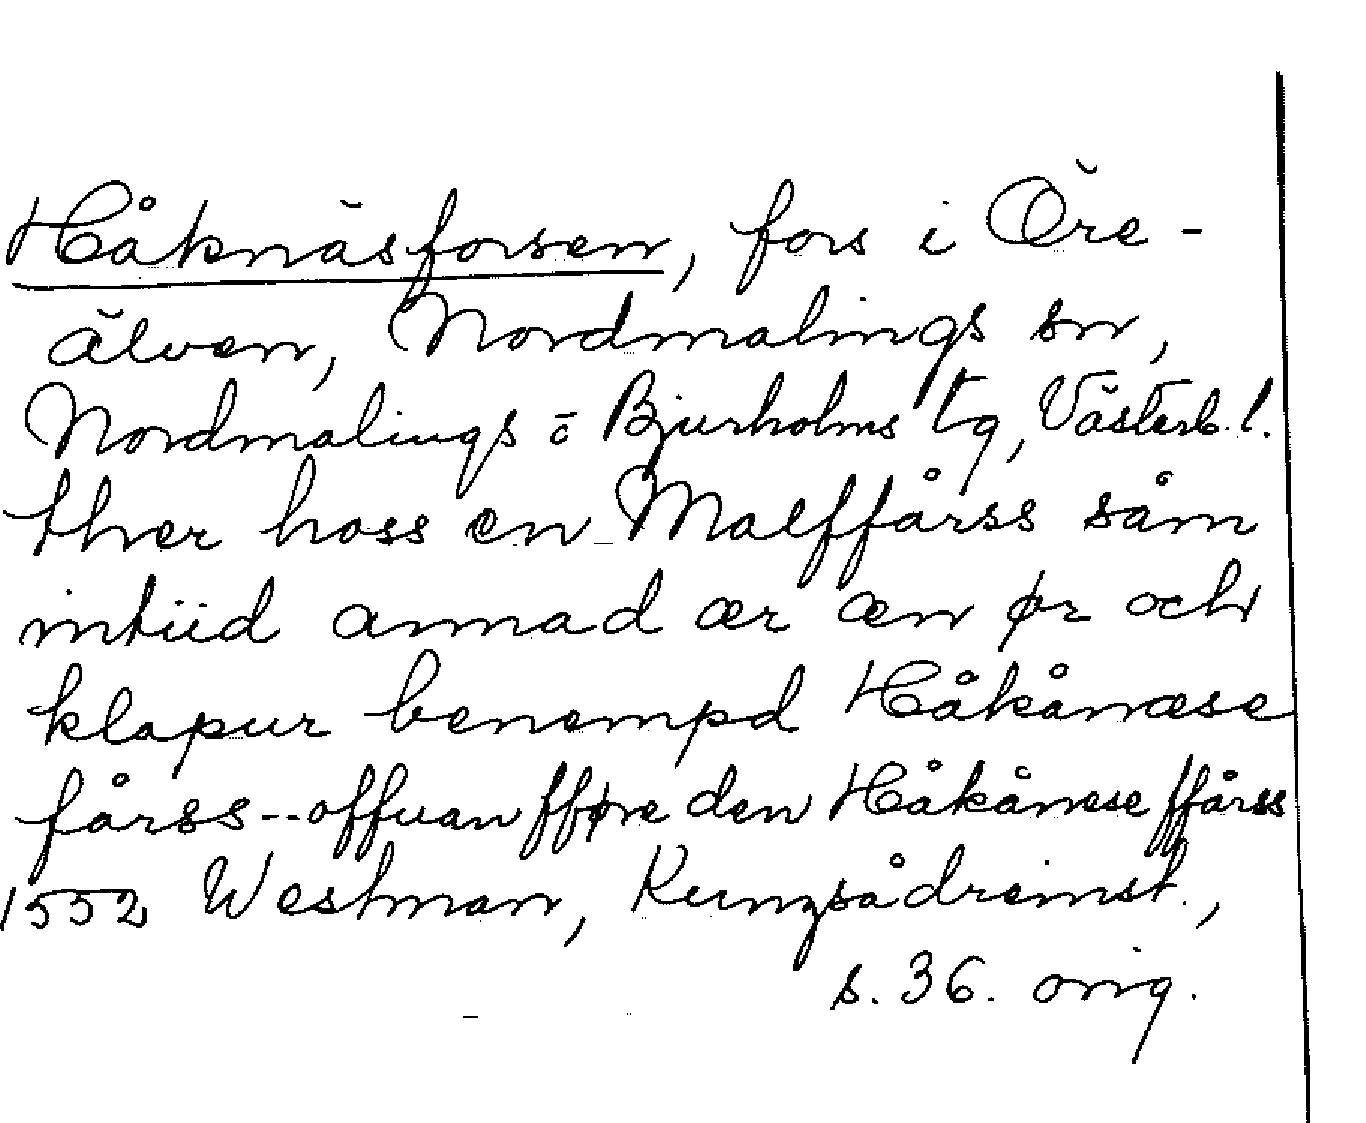 Håknäsforsen, fors i Öre-
älven, Nordmalings sn,
Nordmalings o Bjurholms tg, Västerb. l.
ther hoss en Malffårss såm
intiid annad ær æn ør och
klapur benempd Håkånæse
fårss--offuan fføre den Håkånese ffårss
1552 Westman, Kungsådreinst.,
s. 36. orig.